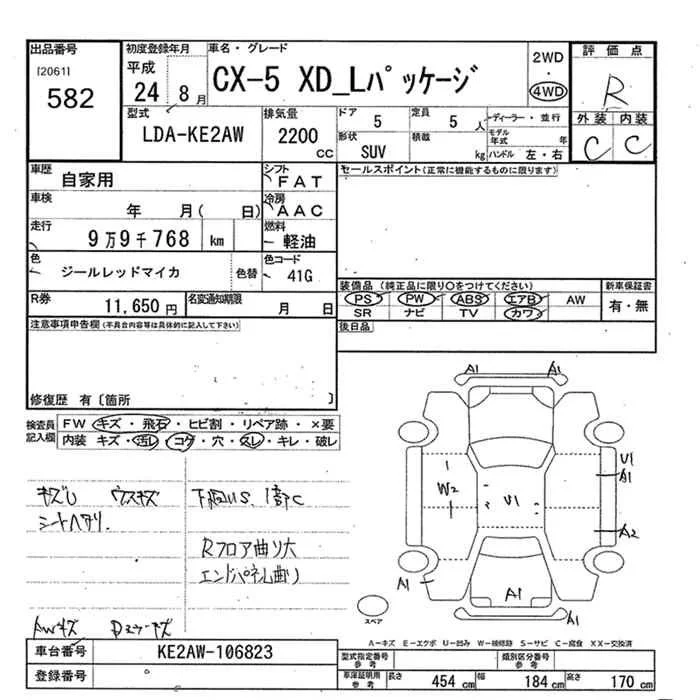 出品番号 初度登録年月 車名・グレード 2WD 評価点
[2061] 平成 CX-5 XD_Lパッケージ 4WD R
582 24 8月
型式 排気量 ドア 定員 ディーラー・並行 外装 内装
LDA-KE2AW 2200 CC 5 5人 モデル年式 年 C C
形状 積載
SUV kg ハンドル 左・右
車歴 自家用 シフト FAT セールスポイント(正常に機能するものに限ります)
車検 年 月( 日) 冷房 AAC
走行 9万9千768 km 燃料 軽油
色 ジールレッドマイカ 色替 色コード 41G
装備品(純正品に限り○をつけてください) 新車保証書
R券 11,650円 名変通知期限 月 日 PS PW ABS エアB AW 有・無
SR ナビ TV カワ
注意事項申告欄(不具合内容等は具体的に記入して下さい) 後日品
修復歴 有〔箇所 〕
検査員記入欄 FW キズ・飛石・ヒビ割・リペア跡・×要
内装 キズ・汚レ・コゲ・穴・スレ・キレ・破レ
A1 A1
U1
A1
W2 U1
A2
A1 A1
A1
キズU ウスキズ 下回US、1部C
シートヘタリ.
Rフロア曲リ大
エンドパネル曲リ
AWキズ
スペア
A-キズ E-エクボ U-凹み W-補修跡 S-サビ C-腐食 XX-交換済
車台番号 KE2AW-106823 型式指定番号 参考 類別区分番号 参考
登録番号 車庫証明用 参考 長さ 454cm 幅 184cm 高さ 170cm